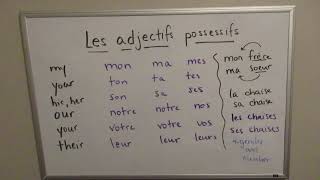 Les adjectifs possessifs
my mon ma mes
your ton ta tes
his, her son sa ses
our notre notre nos
your votre votre vos
their leur leur leurs
mon frère
ma soeur
la chaise
sa chaise
les chaises
ses chaises
number